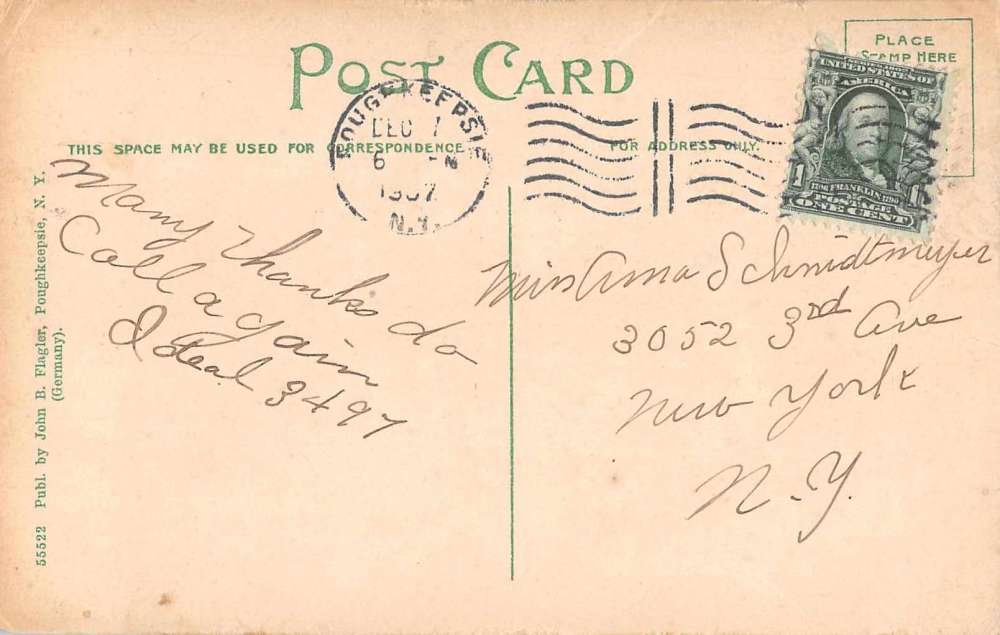 POST CARD
PLACE
STAMP HERE
THIS SPACE MAY BE USED FOR CORRESPONDENCE
FOR ADDRESS ONLY.
POUGHKEEPSIE
DEC 7
6
1907
N.Y.
UNITED STATES OF
AMERICA
1 1
1706 FRANKLIN 1790
POSTAGE
ONE CENT
Many thanks do
Call again
Ideal 3497
Miss Anna Schmidtmeyer
3052 3rd Ave
New York
N.Y.
55522 Publ. by John B. Flagler, Poughkeepsie, N. Y.
(Germany).